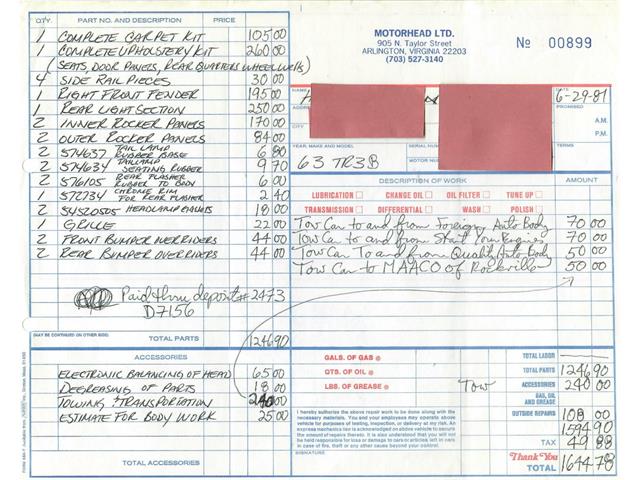 QTY. PART NO. AND DESCRIPTION PRICE
1 COMPLETE CARPET KIT 105 00
1 COMPLETE UPHOLSTERY KIT 260 00
(SEATS, DOOR PANELS, REAR QUARTERS WHEEL WELLS)
4 SIDE RAIL PIECES 30 00
1 RIGHT FRONT FENDER 195 00
1 REAR LIGHT SECTION 250 00
2 INNER ROCKER PANELS 170 00
2 OUTER ROCKER PANELS 84 00
2 574637 TAIL LAMP RUBBER BASE 6 80
2 574634 TAILLAMP SEATING RUBBER 9 70
2 576105 REAR FLASHER RUBBER TO BODY 6 00
1 572734 CHROME RIM FOR REAR FLASHER 2 40
2 HEADLAMP 18 00
1 GRILLE 22 00
2 FRONT BUMPER OVERRIDERS 44 00
2 REAR BUMPER OVERRIDERS 44 00
Paid thru deposit # 2473
D7156
(MAY BE CONTINUED ON OTHER SIDE)
TOTAL PARTS 1246 90
ACCESSORIES
ELECTRONIC BALANCING OF HEAD 65 00
DEGREASING OF PARTS 18 00
TOWING & TRANSPORTATION 240 00
ESTIMATE FOR BODY WORK 25 00
TOTAL ACCESSORIES
MOTORHEAD LTD.
905 N. Taylor Street
ARLINGTON, VIRGINIA 22203
(703) 527-3140
№ 00899
NAME
DATE
6-29-81
PROMISED
A.M.
P.M.
ADDRESS
CITY
TERMS
YEAR, MAKE AND MODEL
SERIAL NUMBER
63 TR3B
MOTOR NO.
DESCRIPTION OF WORK AMOUNT
LUBRICATION CHANGE OIL OIL FILTER TUNE UP
TRANSMISSION DIFFERENTIAL WASH POLISH
Tow Car to and from Foreign Auto Body 70 00
Tow Car to and from Start Your Engines 70 00
Tow Car To and from Quality Auto Body 50 00
Tow Car to MAACO of Rockville 50 00
GALS. OF GAS @
QTS. OF OIL @
LBS. OF GREASE @
Tow
TOTAL LABOR
TOTAL PARTS 1246 90
ACCESSORIES 240 00
GAS, OIL AND GREASE
OUTSIDE REPAIRS 108 00
1594 90
TAX 49 88
Thank You
TOTAL 1644 78
I hereby authorize the above repair work to be done along with the
necessary materials. You and your employees may operate above
vehicle for purposes of testing, inspection, or delivery at my risk. An
express mechanics lien is acknowledged on above vehicle to secure
the amount of repairs thereto. It is also understood that you will not
be held responsible for loss or damage to cars or articles left in cars
in case of fire, theft or any other cause beyond your control.
SIGNATURE